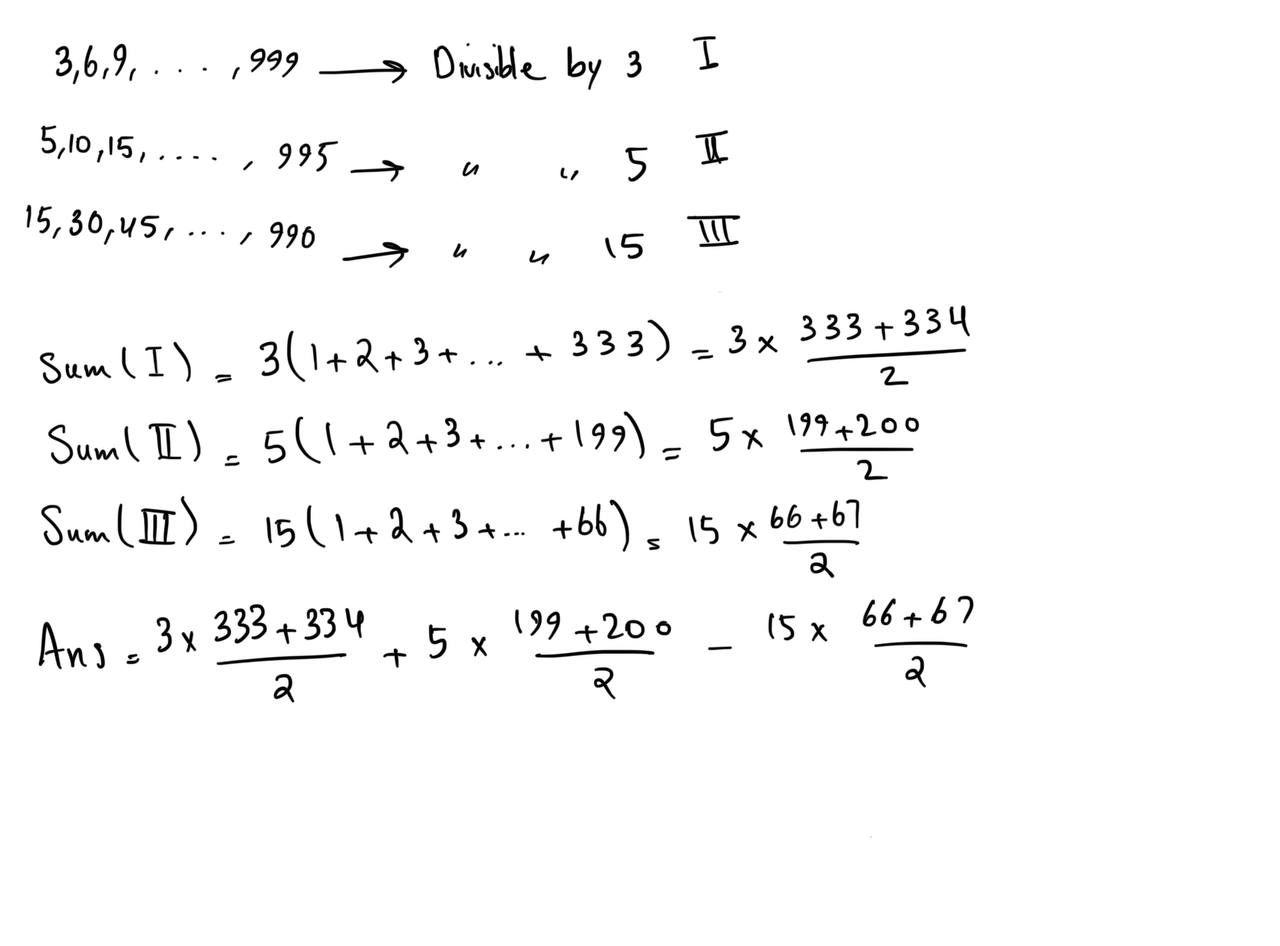 3,6,9, . . . . , 999 ⟶ Divisible by 3 I
5,10,15, . . . . . , 995 ⟶ " " 5 II
15,30,45, . . . , 990 ⟶ " " 15 III
Sum(I) = 3(1+2+3+... + 333) = 3 × (333+334)/2
Sum(II) = 5(1+2+3+...+199) = 5 × (199+200)/2
Sum(III) = 15(1+2+3+... +66) = 15 × (66+67)/2
Ans = 3 × (333+334)/2 + 5 × (199+200)/2 − 15 × (66+67)/2